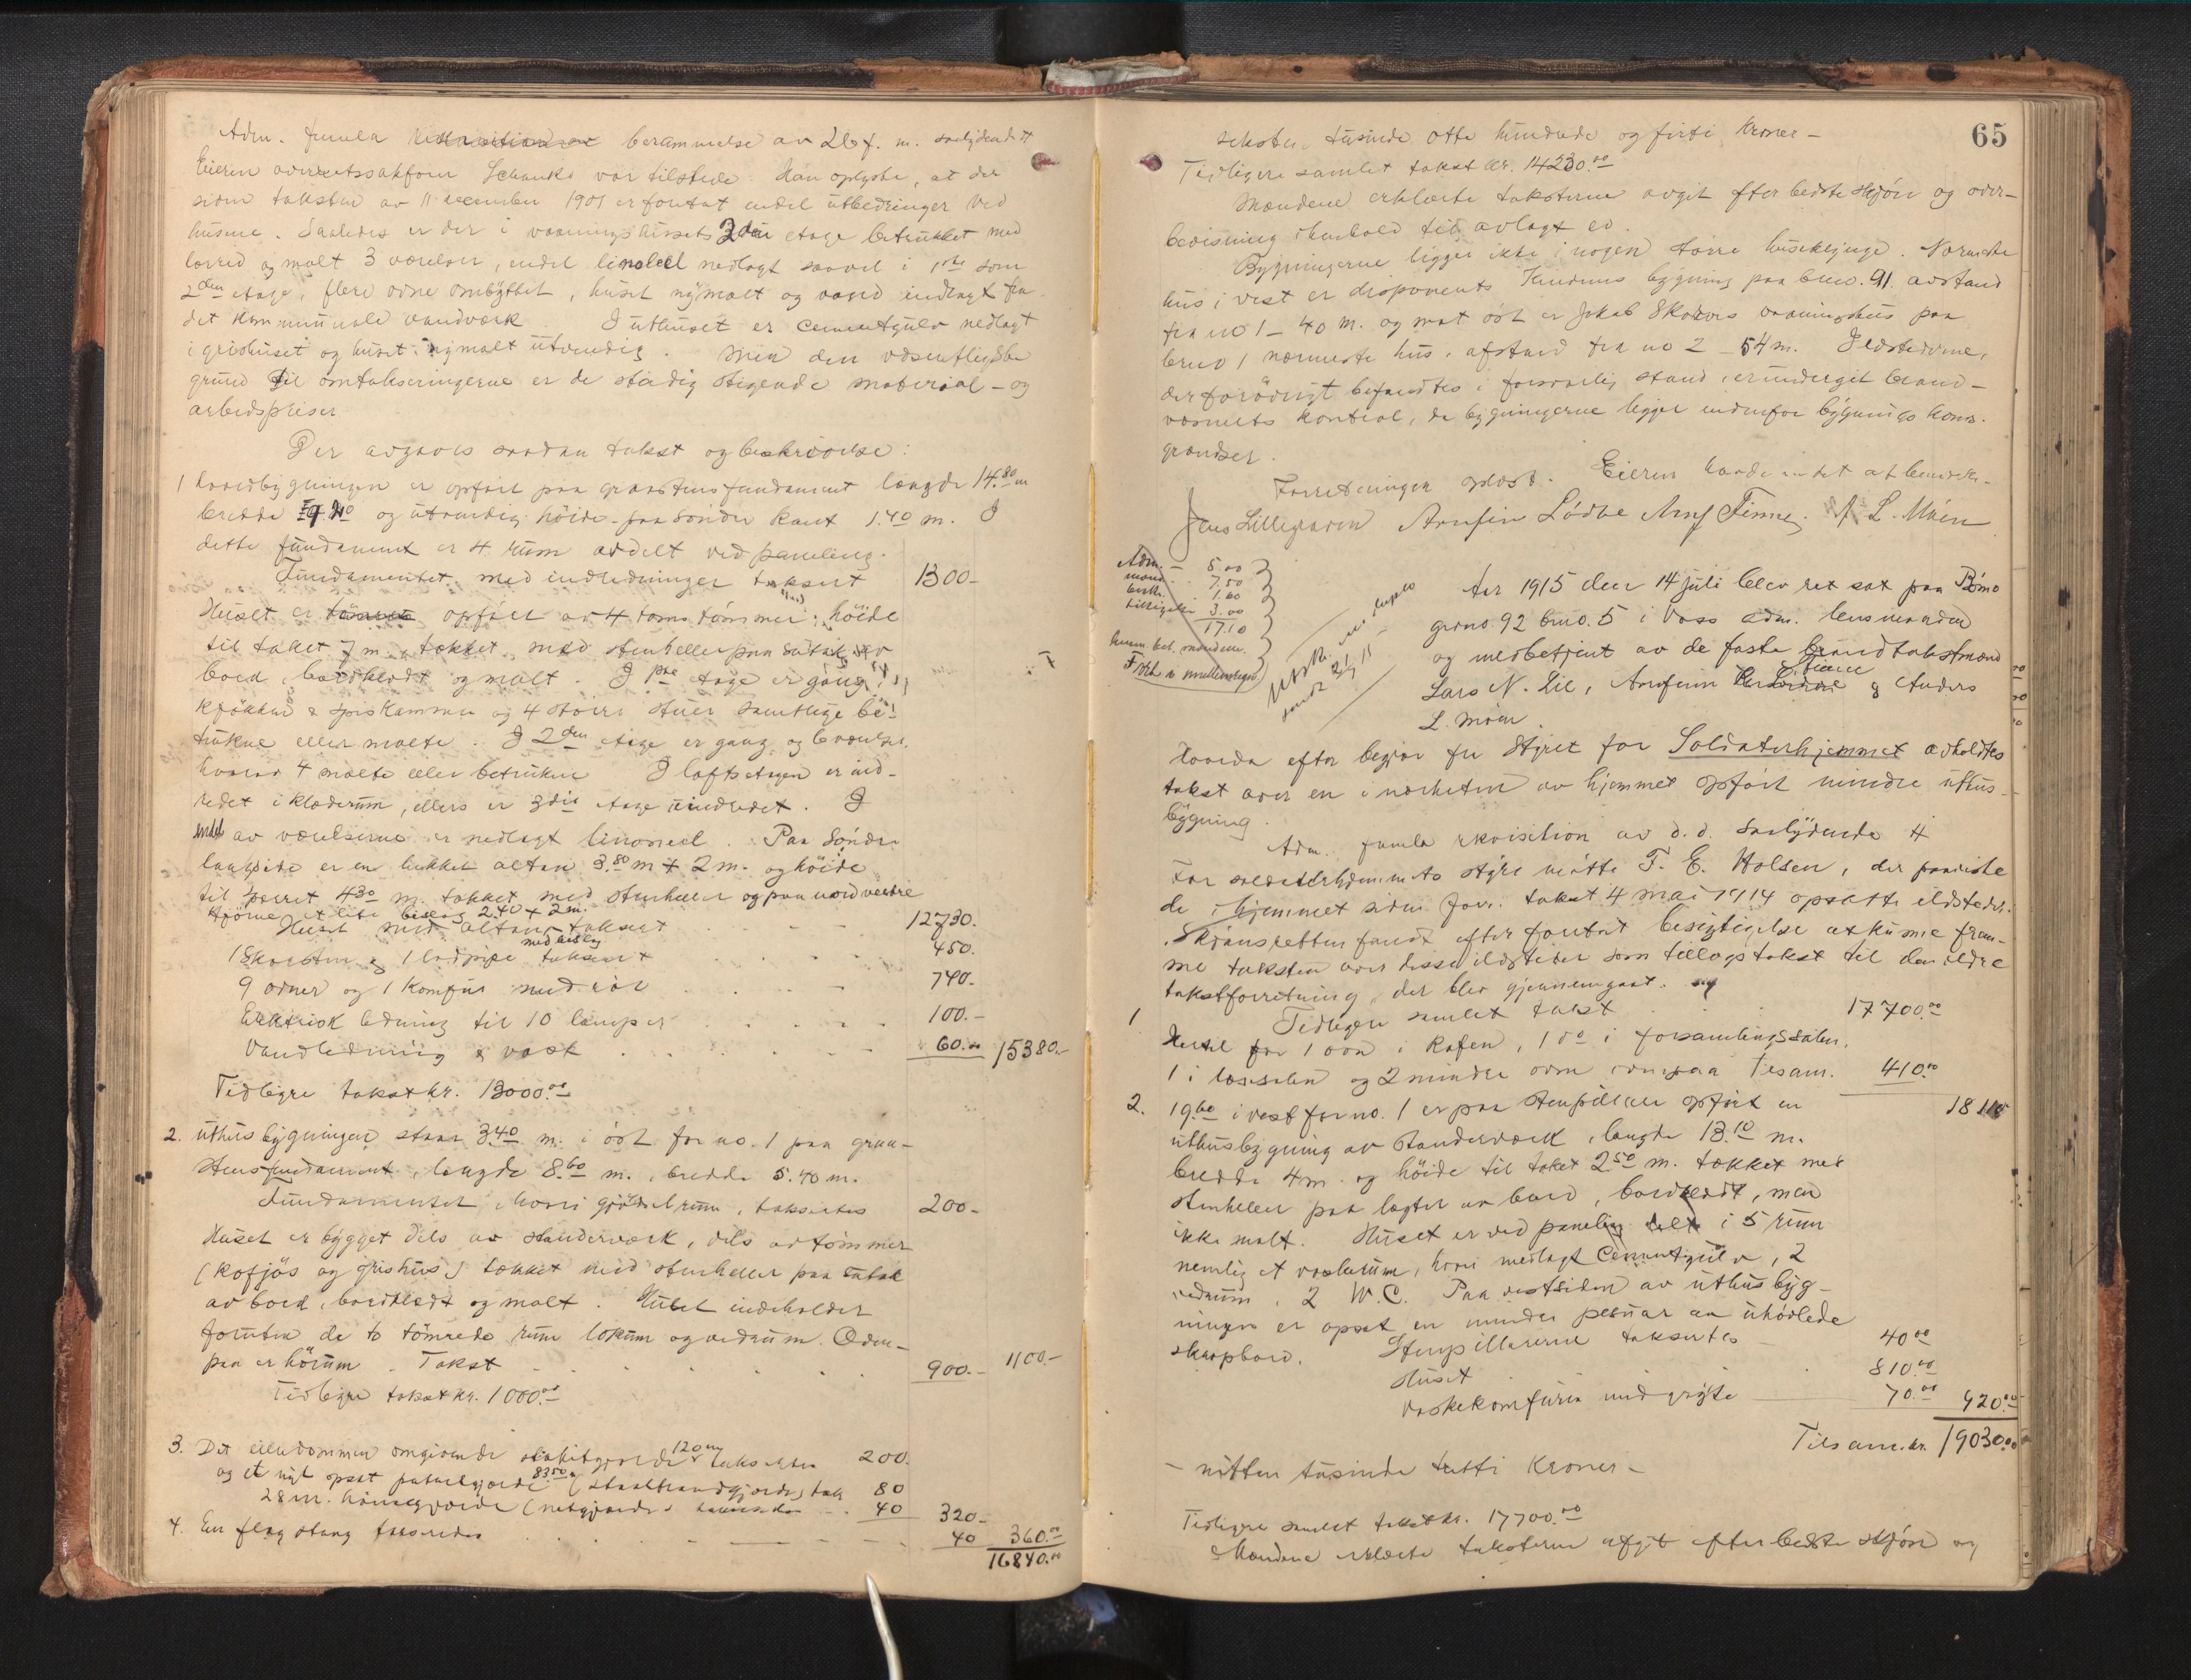 Adm. fremla berammelse av 26 f. m. saalydende #
Eieren overretssakfører Schanke var tilstede. Han oplyste, at der
siden taksten av 11 december 1901 er foretat endel utbedringer ved
husene. Saaledes er der i vaaningshusets 2den etage betrukket med
lærred og malt 3 værelser, endel linoleum nedlagt saavel i 1ste som
2den etage, flere ovne ombyttet, huset nymalt og vand indlagt fra
det kommunale vandværk. I uthuset er cementgulv nedlagt
i grishuset og huset nymalt utvendig. Men den væsentligste
grund til omtakseringerne er de stadig stigende material- og
arbeidspriser
Der avgaves saadan takst og beskrivelse:
1 Hovedbygningen er opført paa graastensfundament længde 14.80 m
bredde 9.40 og utvendig høide paa søndre kant 1.40 m. I
dette fundament er 4 rum avdelt ved paneling.
Fundamentet med indredninger taksert 1300-
Huset er opført av 4 toms tømmer, høide
til taket 7 m. tækket med stenheller paa sutak av
bord, bordklædt og malt. I 1ste etage er gang,
kjøkken & spiskammer og 4 større stuer samtlige be-
trukne eller malte. I 2den etage er gang og 6 værelser,
hvorav 4 malte eller betrukne. I loftsetagen er ind-
redet i klæderum, ellers er 3die etage uindredet. I
endel av værelserne er nedlagt linoleum. Paa søndre
langside er en lukket altan 3.80 m + 2 m. og høide
til sperret 4.30 m. tækket med stenheller og paa nordvestre
hjørne et lite bislag 2.40 + 2 m.
Huset med altan med bislag takset 12730.
1 Skorsten & 1 lodpipe taksert 450.
9 ovner og 1 Komfur med rør 740.
Elektrisk ledning til 10 lamper 100.-
Vandledning & vask 60.- 15380.-
Tidligere takst kr. 13000.00
2. Uthusbygningen staar 3.40 m. i øst for no. 1 paa graa-
stensfundament, længde 8.60 m., bredde 5.40 m.
Fundamentet, hvori gjødselrum, taksertes 200-
Huset er bygget dels av stenderværk, dels av tømmer
(kofjøs og grishus) tækket med stenheller paa sutak
av bord, bordklædt og malt. Huset indeholder
foruten de to tømrede rum lokum og vedrum. Oven-
paa er hørum. Takst 900.- 1100.-
Tidligere takst kr. 1000.00
3. Det eiendommen omgivende stakitgjærde 120 m taksertes 200.
og et nyt opsat 83.50 m (staaltraadgjærde) tak 80
28 m. hønsegjærde (netgjærde) 40 320-
4. En flagstang taksertes 40 360.00
16840.00
65
seksten tusinde otte hundrede og firti Kroner -
Tidligere samlet takst kr. 14230.00
Mændene erklærte taksterne avgit efter bedste skjøn og over-
bevisning i henhold til avlagt ed.
Bygningerne ligger ikke i nogen større huseklynge. Nærmeste
hus i vest er disponents Knudsens bygning paa bno. 91. avstand
fra no 1 - 40 m. og mot øst er Jakob Skorves vaaningshus paa
bno 1 nærmeste hus, afstand fra no 2 - 54 m. Ildstederne,
der forøvrigt befandtes i forsvarlig stand, er undergit brand-
væsnets kontrol, da bygningerne ligger indenfor bygningskoms.
grændser.
Forretningen oplæst. Eieren havde intet at bemerke.
Jens Lillegraven Arnfin Lødve Arnf Finne A L. Møen
Adm. - 5.00
mænd. 7.50
1.60
3.00
17.10
Aar 1915 den 14 juli blev ret sat paa Rømo
grno. 92 bno. 5 i Voss adm. lensmanden
og medbetjent av de faste brandtakstmænd
Lars N. Lie, Arnfinn Finne & Anders
L. Møen.
Hvorda efter begjær fra Styret for Soldaterhjemmet avholdtes
takst over en i nærheten av hjemmet opført mindre uthus-
bygning.
Adm. fremla rekvisition av d.d. saalydende #
For soldaterhjemmets styre møtte T. E. Holsen, der paaviste
de i hjemmet siden forr. takst 4 mai 1914 opsatte ildsteder.
Skjønsretten fandt efter foretat besigtigelse at kunne frem-
me taksten over disse ildsteder som tillægstakst til den ældre
takstforretning, der blev gjennemgaat.
1 Tidligere samlet takst 17700.00
Hertil for 1 ovn i kafeen, 1 do i forsamlingssalen,
1 i læsesalen og 2 mindre ovne ovenpaa Tilsam. 410.00
18110
2. 19.60 i vest for no. 1 er paa stenpillarer opført en
uthusbygning av stenderværk, længde 13.10 m.
bredde 4 m. og høide til taket 2.50 m. tækket med
stenheller paa lægter av bord, bordklædt, men
ikke malt. Huset er ved paneling delt i 5 rum
nemlig et vaskerum, hvori nedlagt Cementgulv, 2
vedrum, 2 W.C. Paa vestsiden av uthusbyg-
ningen er opsat en mindre pissoar av uhøvlede
skarpbord. Stenpillarerne taksertes 40.00
Huset 810.00
Vaskekomfuren med gryte 70.00 920.00
Tilsam. kr. 19030.00
- nitten tusinde tretti Kroner -
Tidligere samlet takst kr. 17700.00
Mændene erklærte taksterne afgit efter bedste skjøn og